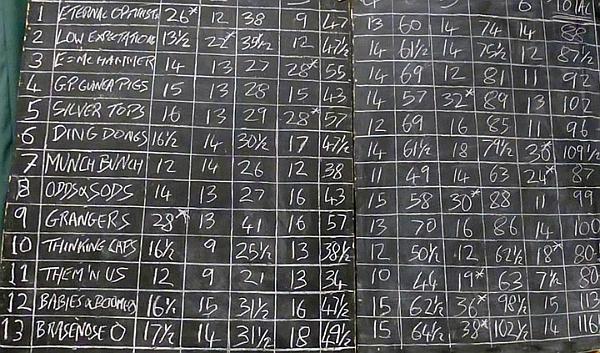 6 TOTAL
1 ETERNAL OPTIMISTS 26* 12 38 9 47 13 60 14 74 14 88
2 LOW EXPECTATIONS 13½ 22* 35½ 12 47½ 14 61½ 14 75½ 12 87½
3 E=MC HAMMER 14 13 27 28* 55 14 69 12 81 11 92
4 G.P. GUINEA PIGS 15 13 28 15 43 14 57 32* 89 13 102
5 SILVER TOPS 16 13 29 28* 57 12 69 16 85 11 96
6 DING DONGS 16½ 14 30½ 17 47½ 14 61½ 18 79½ 30* 109½
7 MUNCH BUNCH 12 14 26 12 38 11 49 14 63 24* 87
8 ODDS & SODS 14 13 27 16 43 15 58 30* 88 11 99
9 GRANGERS 28* 13 41 16 57 13 70 16 86 14 100
10 THINKING CAPS 16½ 9 25½ 13 38½ 12 50½ 12 62½ 18* 80
11 THEM 'N US 12 9 21 13 34 10 44 19* 63 7½ 80
12 BABIES & BOOMERS 16½ 15 31½ 16 47½ 15 62½ 36* 98½ 15 113
13 BRASENOSE O 17½ 14 31½ 18 49½ 15 64½ 38* 102½ 14 116